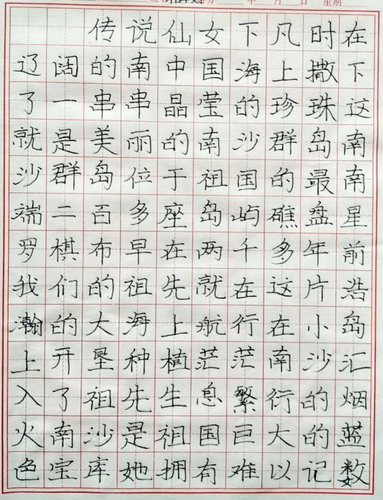 传说仙女下凡时在
辽阔的南中国海上撒下
了一串串晶莹的珍珠这
就是美丽的南沙群岛南
沙群岛位于祖国的最南
端二百多座岛屿礁盘星
罗棋布早在两千多年前
我们的祖先就在这片浩
瀚的大海上航行在小岛
上开垦种植茫茫南沙汇
入了祖先生息繁行的烟
火南沙是祖国巨大的蓝
色宝库她拥有难以记数